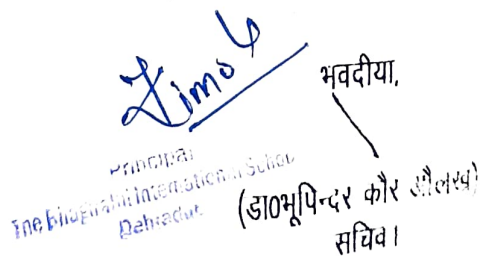 भवदीया,
Principal
The Bhagirathi International School
Dehradun
(डा0भूपिन्दर कौर औलख)
सचिव।